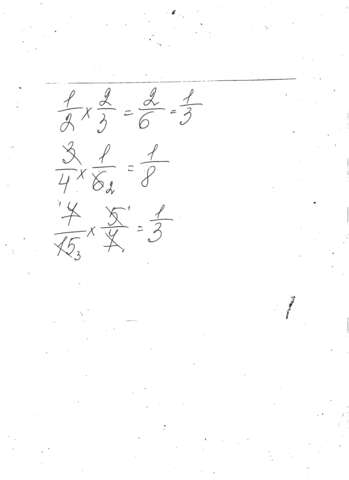 1/2 × 2/3 = 2/6 = 1/3
3/4 × 1/6 2 = 1/8
1 7/15 3 × 5 1/7 = 1/3